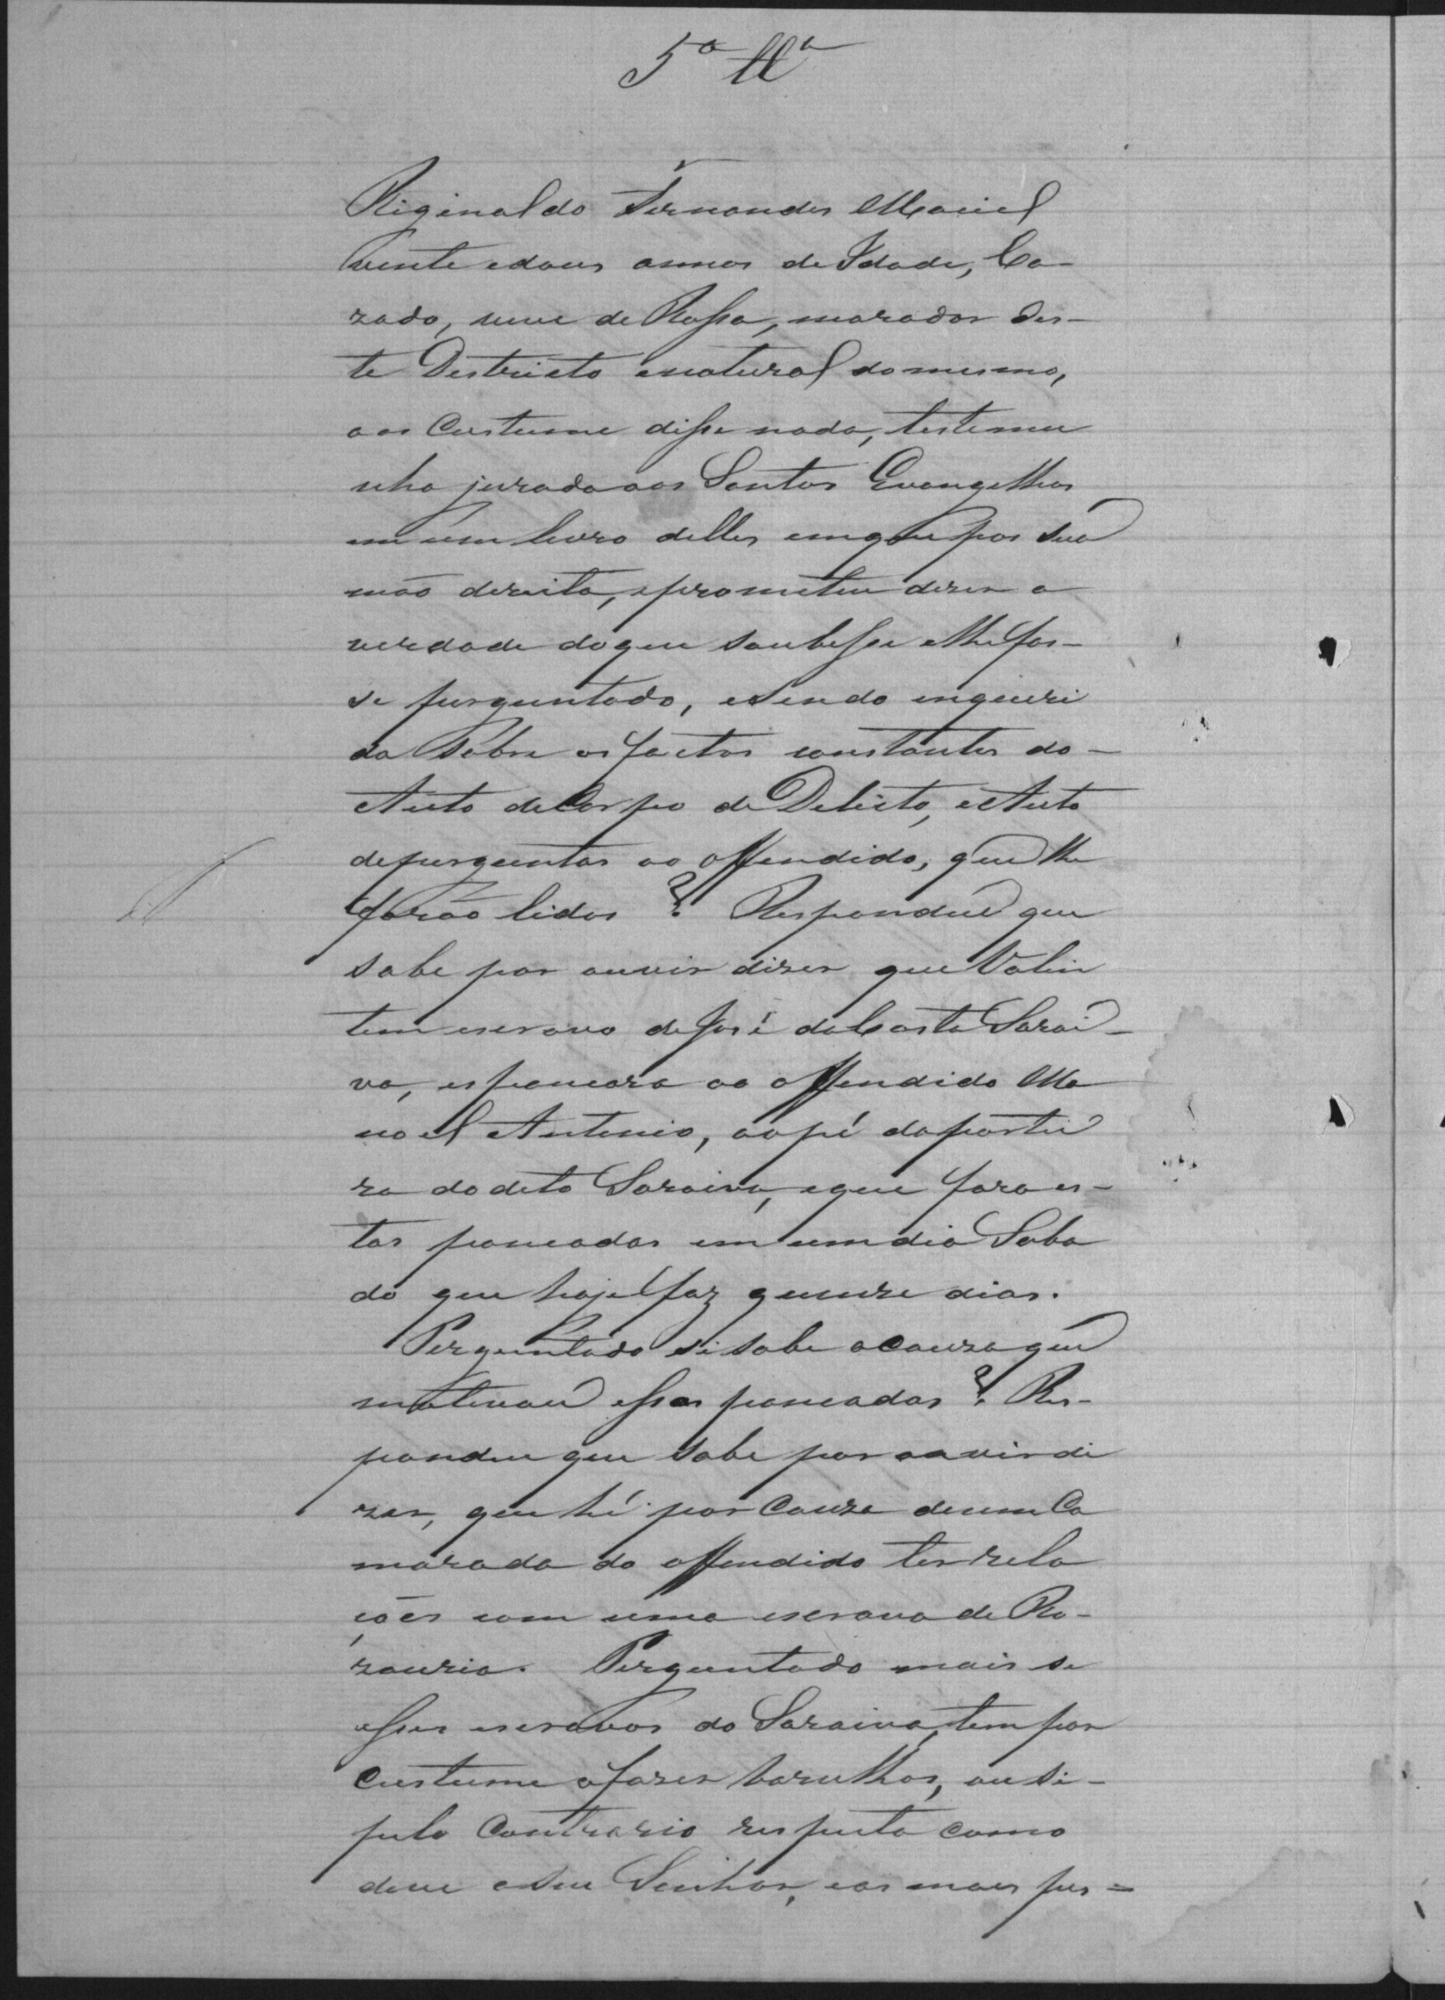 5ª Ttª
Riginaldo Fernandes Maciel
vinte edous annos de Idade, Ca-
zado, vive de Rossa, morador des-
te Destricto enatural domesmo,
aos Custume disse nada, testemu
nha jurada aos Santos Evangelhos
em um livro delles emque pos sua
mão dereita, eprometeu dizer a
verdade doque soubesse elhe fos-
se preguntado, esendo enqueri
do Sobre osfactos constantes do-
Auto deCorpo de Delicto, eAuto
depreguntas ao offendido, que lhe
forão lidos? Respondeu que
sabe por ouvir dizer que Valin
tem escravo deJosé daCosta Sarai-
va, espancara ao offendido Ma
noel Antonio, aopé daportei
ra dodito Saraiva, eque fora es-
tas pancadas em umdia Saba
do que hoje faz quinze dias.
Perguntado sisabe acauza que
motivou essas pancadas? Res-
pondeu que sabe por ouvir di
zer, que hé por Cauza deum Ca
marada do offendido ter rela
ções com uma escrava de Ro-
zauria. Perguntado mais se
esses escravos do Saraiva, tem por
Custume afazer barulhos, ou si-
pelo Contrario respeita como
deve aseu Senhor, eas mais pes=